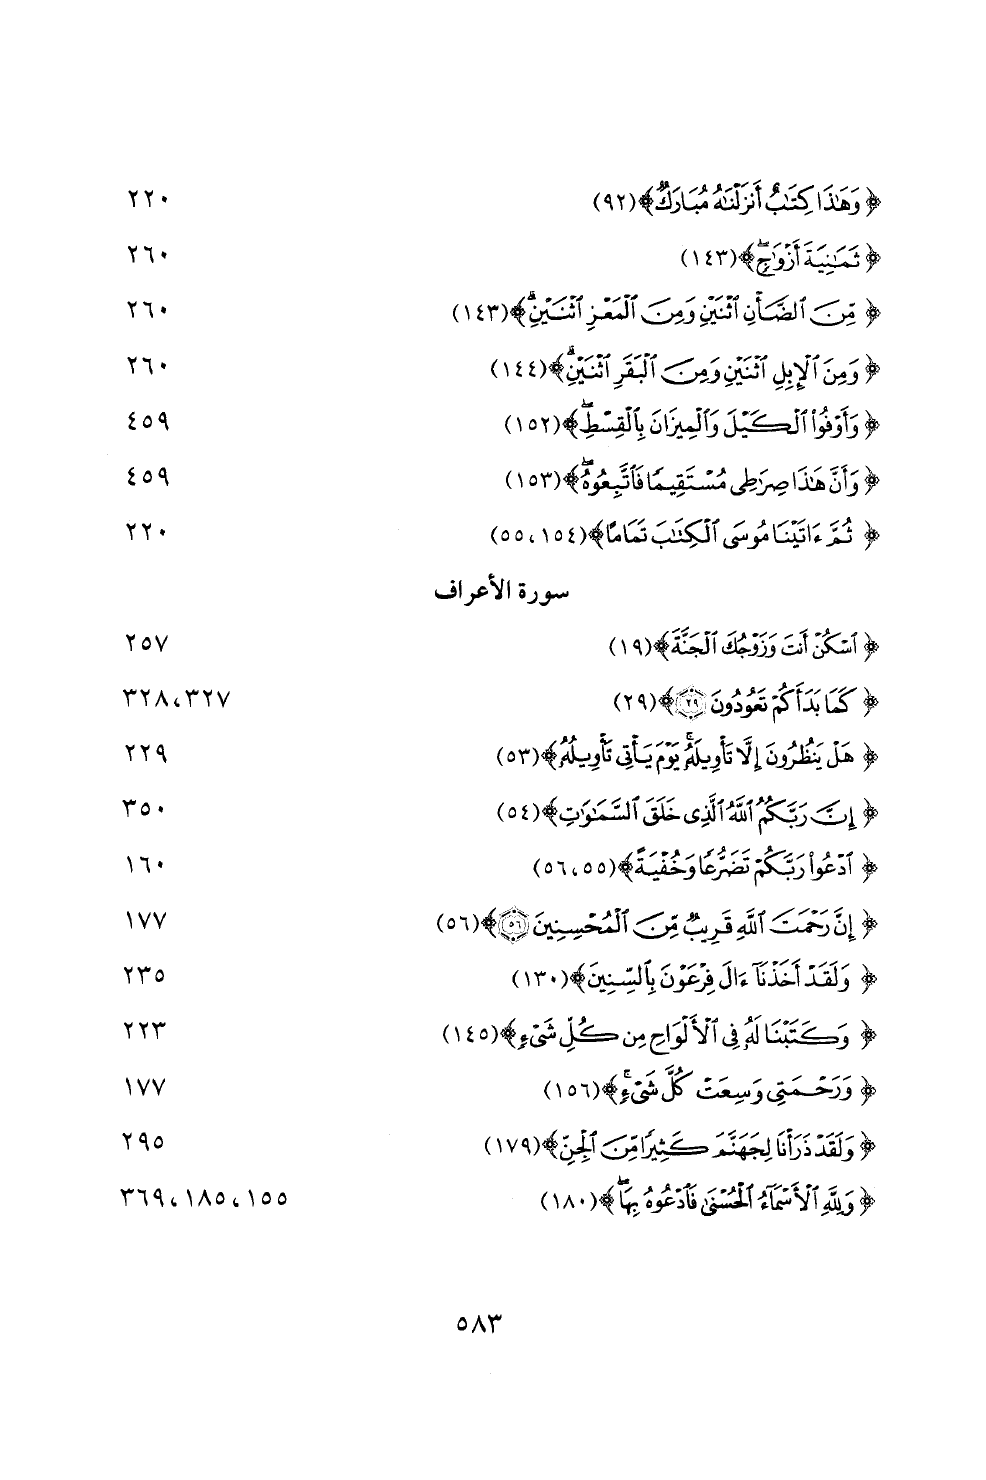 ﴿وَهَٰذَا كِتَٰبٌ أَنزَلْنَٰهُ مُبَارَكٌ﴾ (٩٢) ٢٢٠
﴿ثَمَٰنِيَةَ أَزْوَٰجٍۖ﴾ (١٤٣) ٢٦٠
﴿مِّنَ ٱلضَّأْنِ ٱثْنَيْنِ وَمِنَ ٱلْمَعْزِ ٱثْنَيْنِۗ﴾ (١٤٣) ٢٦٠
﴿وَمِنَ ٱلْإِبِلِ ٱثْنَيْنِ وَمِنَ ٱلْبَقَرِ ٱثْنَيْنِۗ﴾ (١٤٤) ٢٦٠
﴿وَأَوْفُوا۟ ٱلْكَيْلَ وَٱلْمِيزَانَ بِٱلْقِسْطِۖ﴾ (١٥٢) ٤٥٩
﴿وَأَنَّ هَٰذَا صِرَٰطِى مُسْتَقِيمًا فَٱتَّبِعُوهُۖ﴾ (١٥٣) ٤٥٩
﴿ثُمَّ ءَاتَيْنَا مُوسَى ٱلْكِتَٰبَ تَمَامًا﴾ (٥٥،١٥٤) ٢٢٠
سورة الأعراف
﴿ٱسْكُنْ أَنتَ وَزَوْجُكَ ٱلْجَنَّةَ﴾ (١٩) ٢٥٧
﴿كَمَا بَدَأَكُمْ تَعُودُونَ ٢٩﴾ (٢٩) ٣٢٨،٣٢٧
﴿هَلْ يَنظُرُونَ إِلَّا تَأْوِيلَهُۥۚ يَوْمَ يَأْتِى تَأْوِيلُهُۥ﴾ (٥٣) ٢٢٩
﴿إِنَّ رَبَّكُمُ ٱللَّهُ ٱلَّذِى خَلَقَ ٱلسَّمَٰوَٰتِ﴾ (٥٤) ٣٥٠
﴿ٱدْعُوا۟ رَبَّكُمْ تَضَرُّعًا وَخُفْيَةً﴾ (٥٦،٥٥) ١٦٠
﴿إِنَّ رَحْمَتَ ٱللَّهِ قَرِيبٌ مِّنَ ٱلْمُحْسِنِينَ ٥٦﴾ (٥٦) ١٧٧
﴿وَلَقَدْ أَخَذْنَآ ءَالَ فِرْعَوْنَ بِٱلسِّنِينَ﴾ (١٣٠) ٢٣٥
﴿وَكَتَبْنَا لَهُۥ فِى ٱلْأَلْوَاحِ مِن كُلِّ شَىْءٍ﴾ (١٤٥) ٢٢٣
﴿وَرَحْمَتِى وَسِعَتْ كُلَّ شَىْءٍۚ﴾ (١٥٦) ١٧٧
﴿وَلَقَدْ ذَرَأْنَا لِجَهَنَّمَ كَثِيرًا مِّنَ ٱلْجِنِّ﴾ (١٧٩) ٢٩٥
﴿وَلِلَّهِ ٱلْأَسْمَآءُ ٱلْحُسْنَىٰ فَٱدْعُوهُ بِهَاۖ﴾ (١٨٠) ٣٦٩،١٨٥،١٥٥
٥٨٣